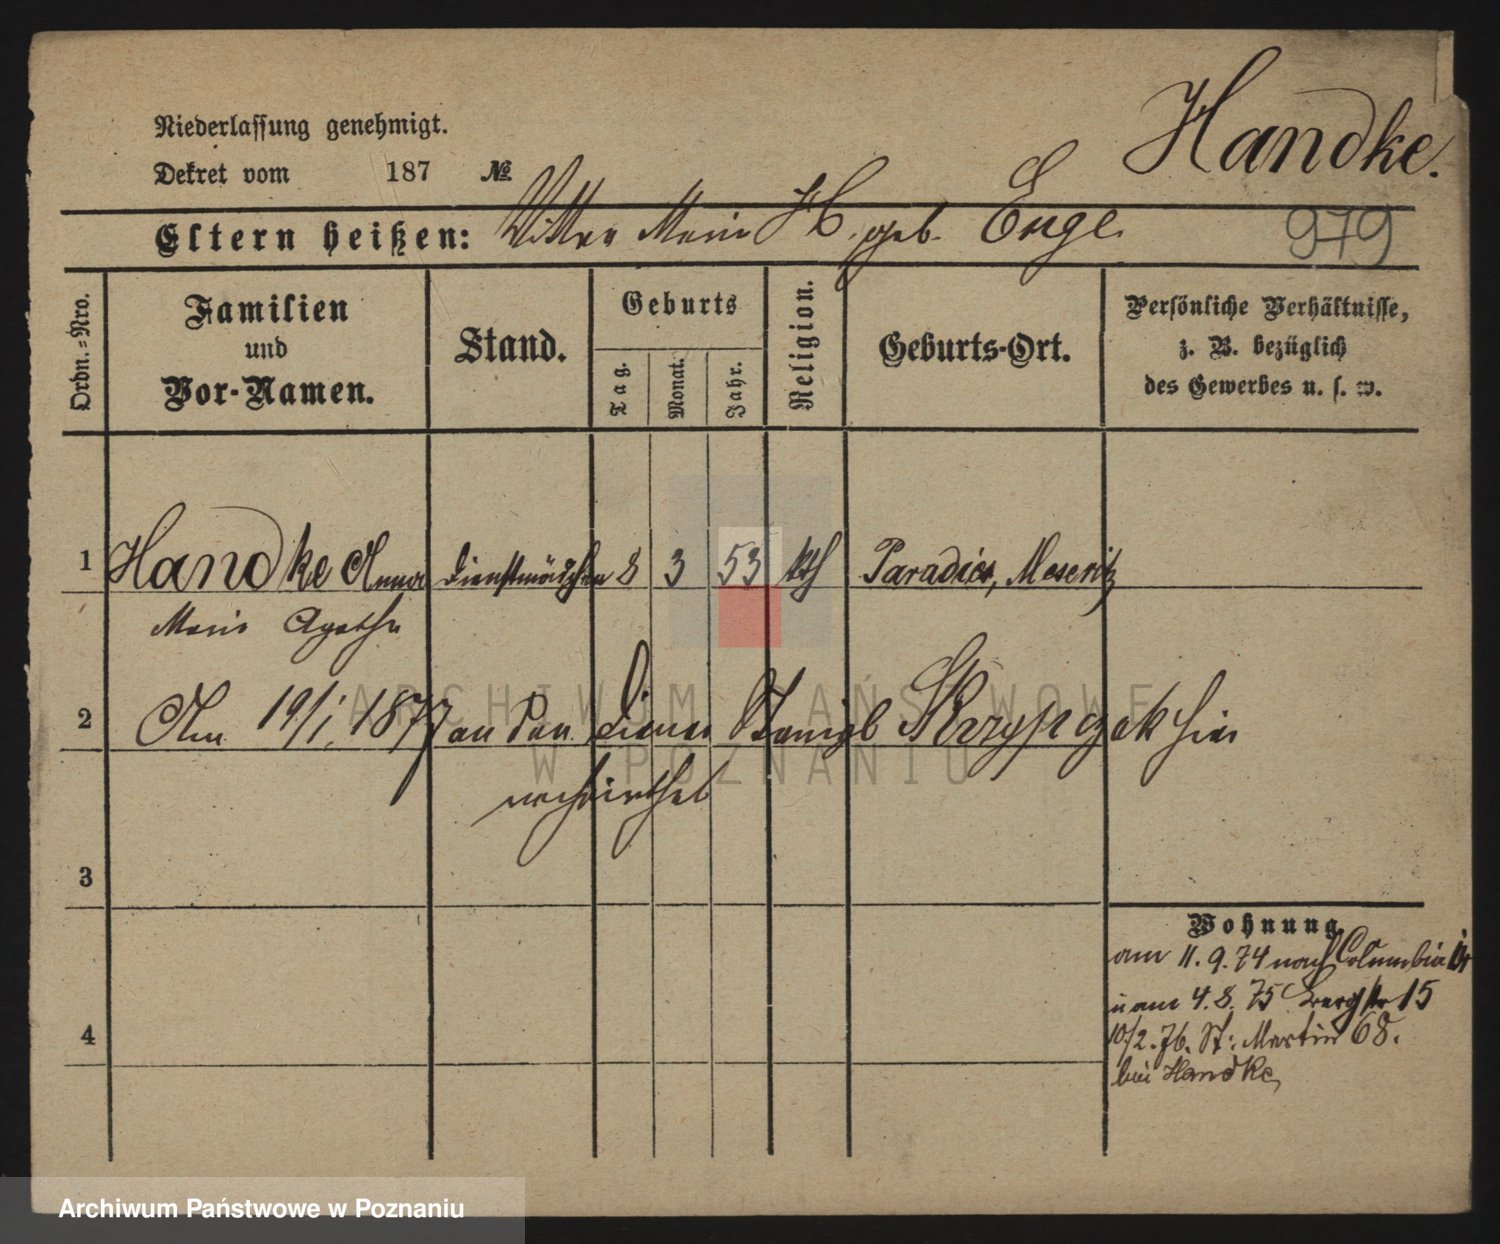 Handke.
Niederlassung genehmigt.
Dekret vom 187 No.
Eltern heißen: Marie H. geb. Enge.
979
Ordn.-Nro.
Familien und Vor-Namen.
Stand.
Geburts
Tag.
Monat.
Jahr.
Religion.
Geburts-Ort.
Persönliche Verhältnisse,
z. B. bezüglich
des Gewerbes u. s. w.
1 Handke Anna Dienstmädchen 8 3 53 kth Paradies, Meseritz
Marie Agathe
2 Am 19/1. 1877 an den Diener Stanisl Skrzypczak hier
verheirathet
3
Wohnung.
am 11.9.74 nach Columbia
u am 4.8.75 Bergstr 15
4
10/2.76. St: Martin 68.
bei Handke
ARCHIWUM PAŃSTWOWE
W POZNANIU
Archiwum Państwowe w Poznaniu